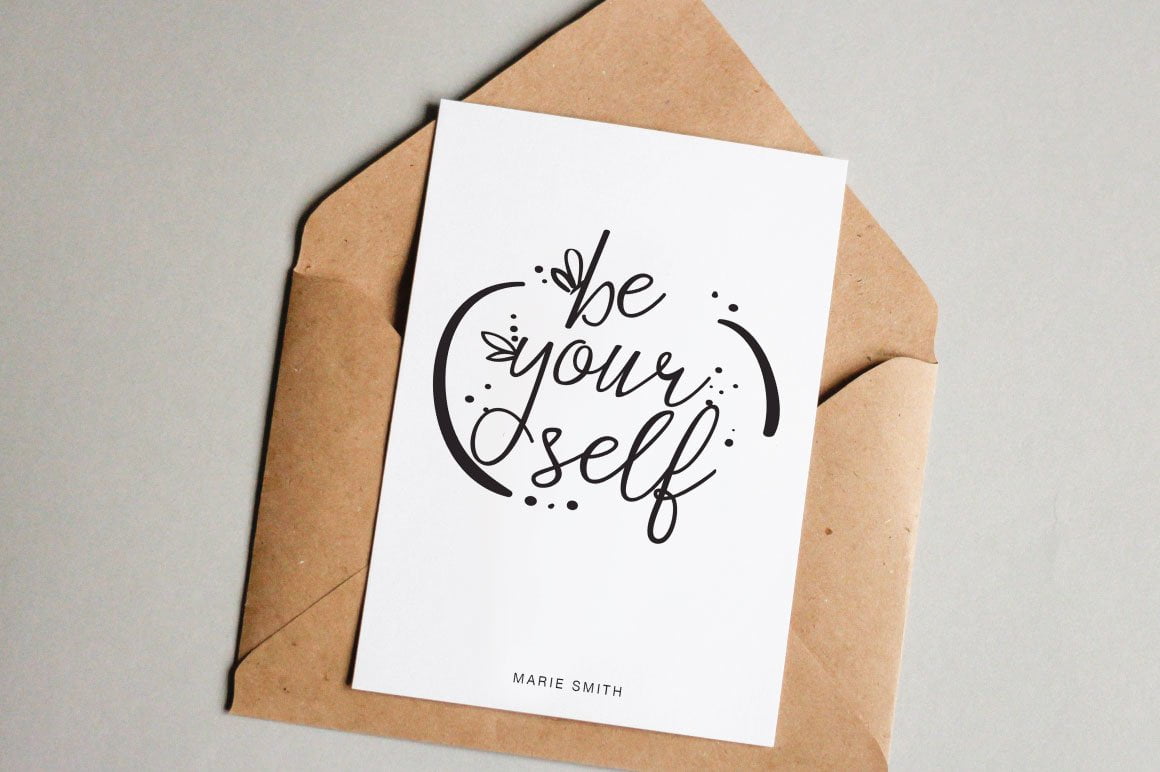 be
your
self
MARIE SMITH